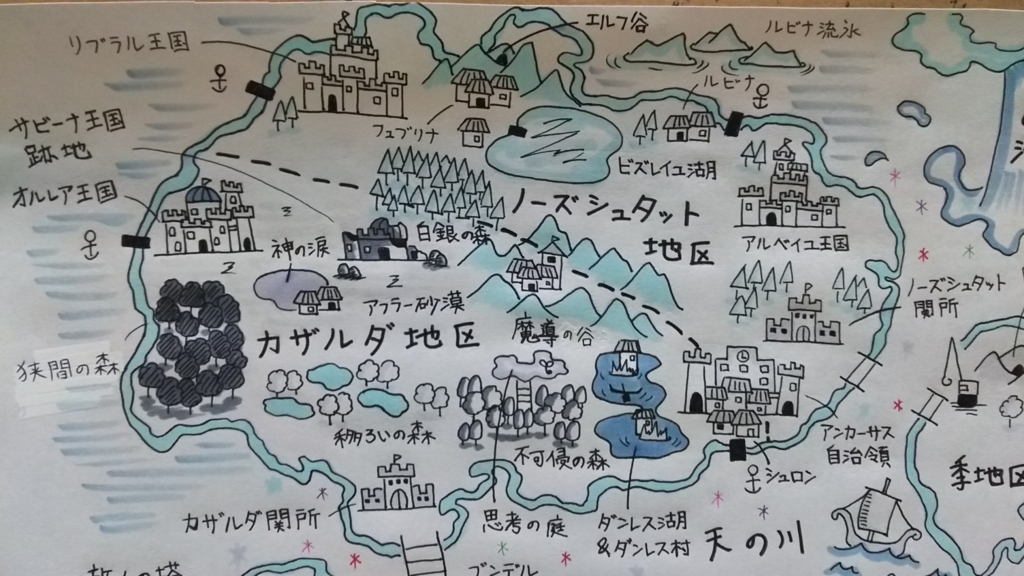 リブラル王国
エルフ谷
ルビナ流氷
ルビナ
サビーナ王国
跡地
フュブリナ
ビズレイユ湖
オルレア王国
ノーズシュタット
地区
白銀の森
アルベイユ王国
神の涙
アフラー砂漠
ノーズシュタット
関所
カザルダ地区
魔導の谷
狭間の森
移ろいの森
不可侵の森
アンカーサス
自治領
シュロン
カザルダ関所
思考の庭
ダンレス湖
&ダンレス村
天の川
季地区
ブンデル